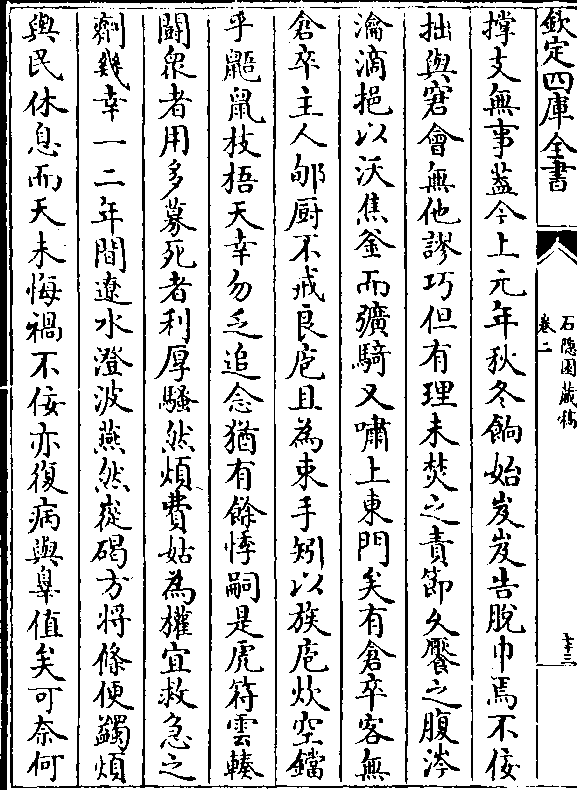 欽定四庫全書
石隱園藏稿
卷二
十三
撐支無事蓋今上元年秋冬餉始岌岌告脫巾焉不佞
拙與窘會無他謬巧但有理未焚之責節久饜之腹涔
瀹滴挹以沃焦釜而彍騎又嘯上東門矣有倉卒客無
倉卒主人郇厨不戒良庖且為束手矧以族庖炊空鐺
乎鼯鼠枝梧天幸勿乏追念猶有餘悸嗣是虎符雲轃
鬭衆者用多募死者利厚騷然煩費姑為權宜救急之
劑幾幸一二年間遼水澄波燕然嵷碣方將條便蠲煩
與民休息而天未悔禍不佞亦復病與辠值矣可奈何